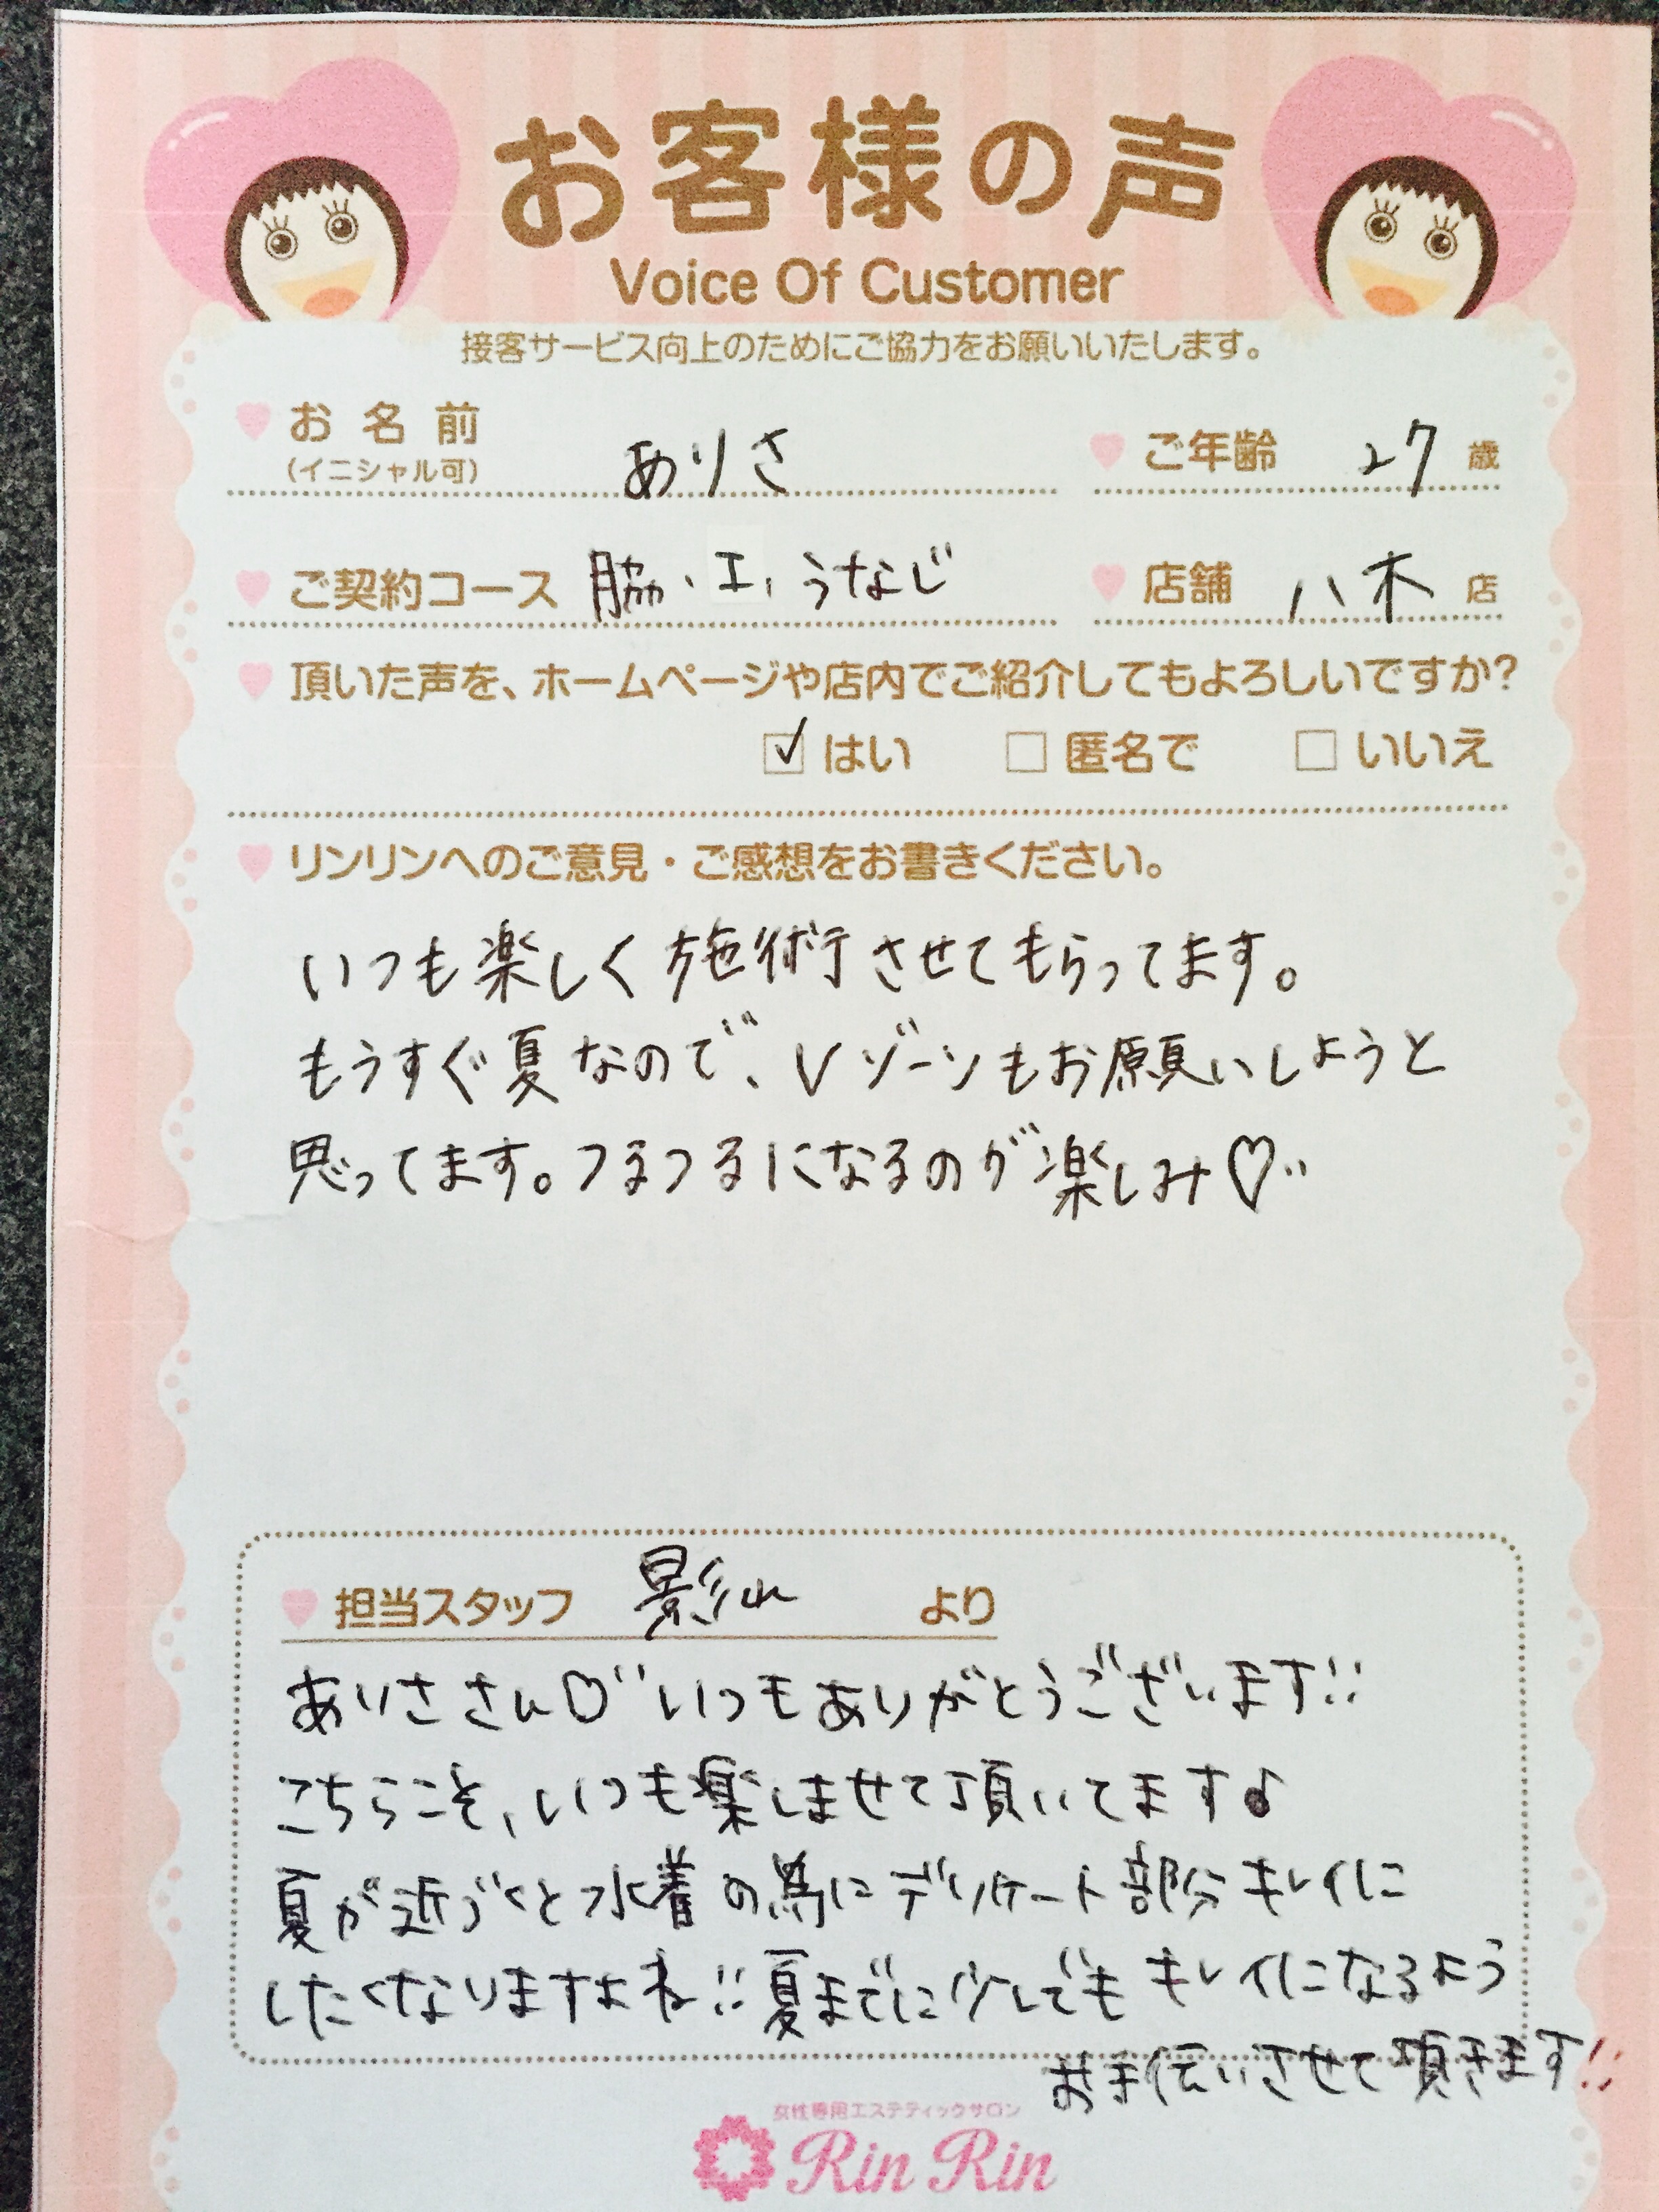 お客様の声
Voice Of Customer
接客サービス向上のためにご協力をお願いいたします。
お名前 ありさ ご年齢 27 歳
(イニシャル可)
ご契約コース 脇、エ、うなじ 店舗 八木 店
頂いた声を、ホームページや店内でご紹介してもよろしいですか?
はい 匿名で いいえ
リンリンへのご意見・ご感想をお書きください。
いつも楽しく施術させてもらってます。
もうすぐ夏なので、Vゾーンもお願いしようと
思ってます。つるつるになるのが楽しみ♡
担当スタッフ 影山 より
ありささん♡いつもありがとうございます!!
こちらこそ、いつも楽しませて頂いてます♪
夏が近づくと水着の為にデリケート部分キレイに
したくなりますよね!!夏までに少しでもキレイになるよう
お手伝いさせて頂きます!!
女性専用エステティックサロン
Rin Rin